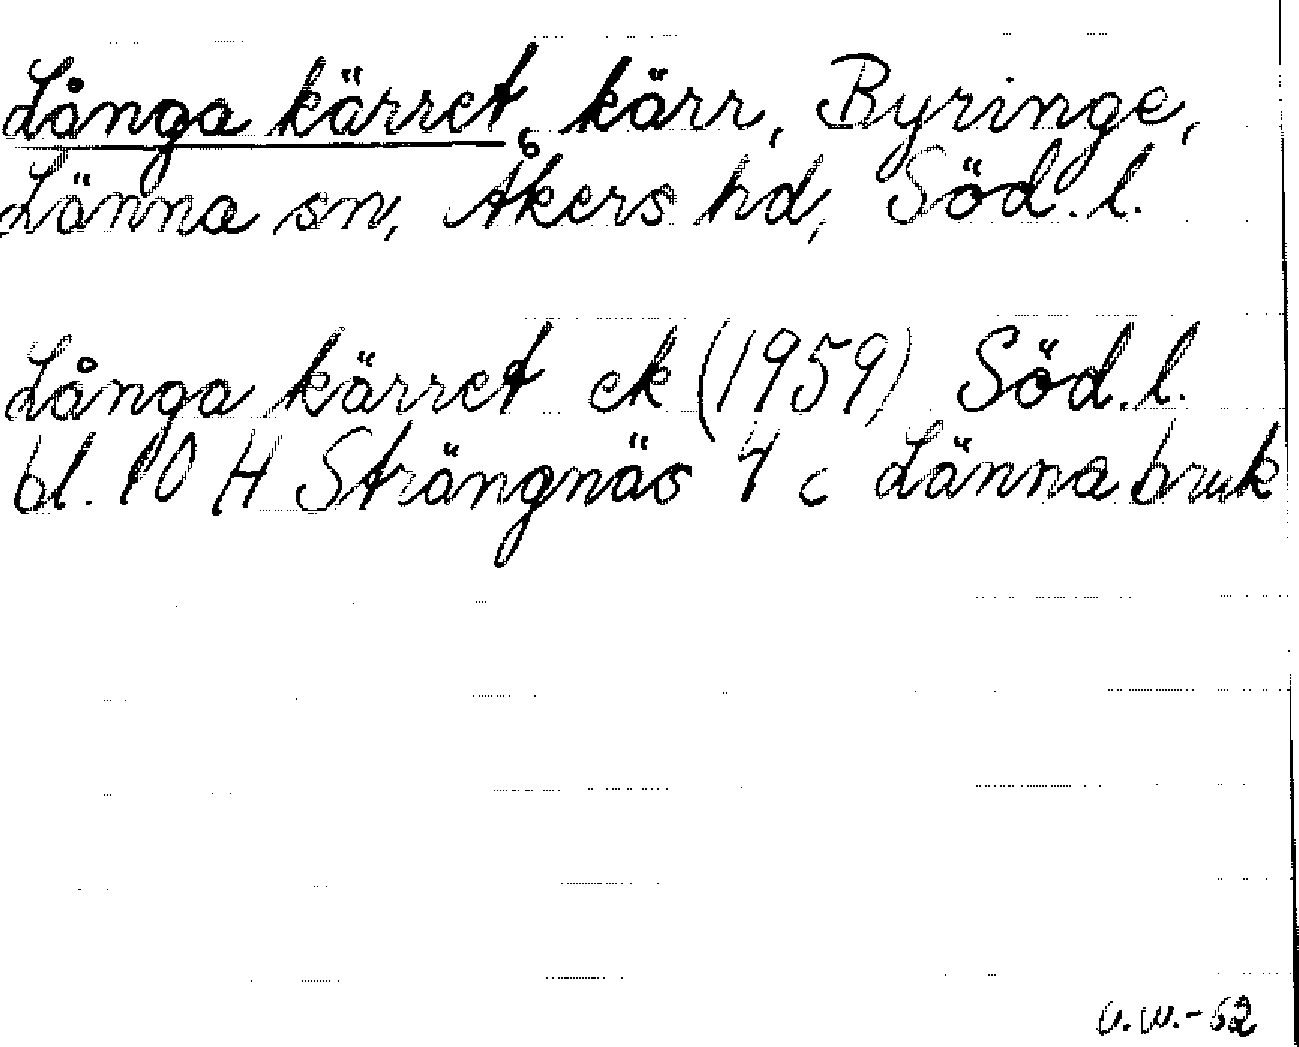 Långa kärret, kärr, Byringe,
Länna sn, Åkers hd, Söd. l.
Långa kärret ek (1959) Söd. l.
bl. 10 H Strängnäs 4 c Länna bruk